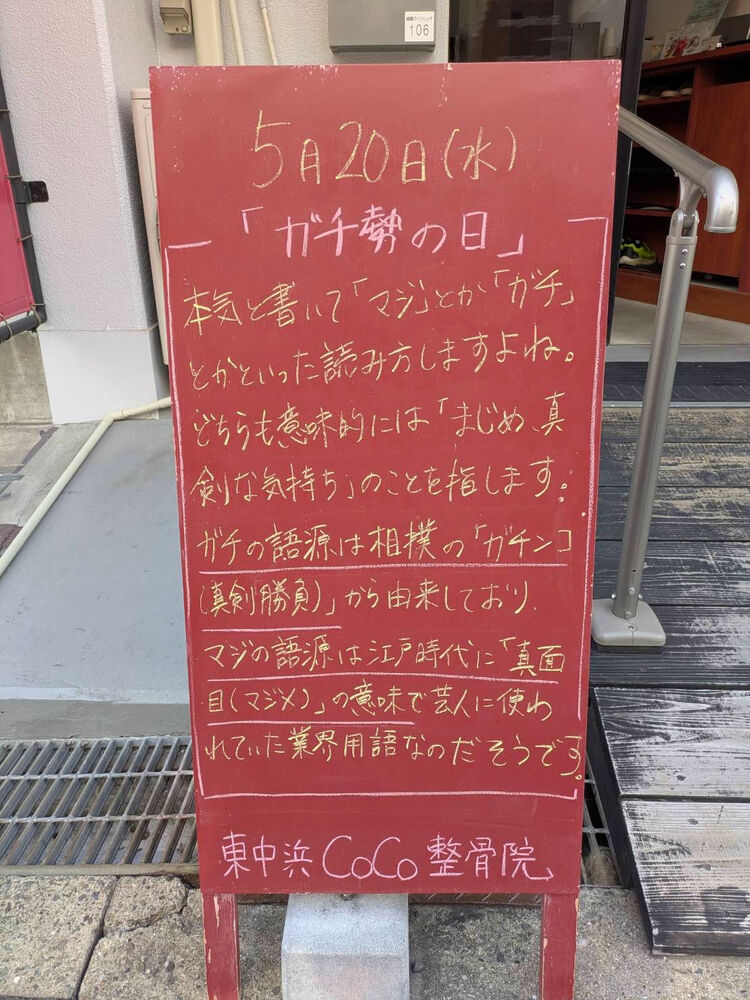 106
5月20日(水)
「ガチ勢の日」
本気と書いて「マジ」とか「ガチ」
とかといった読み方しますよね。
どちらも意味的には「まじめ、真
剣な気持ち」のことを指します。
ガチの語源は相撲の「ガチンコ
(真剣勝負)」から由来しており、
マジの語源は江戸時代に「真面
目(マジメ)」の意味で芸人に使わ
れていた業界用語なのだそうです。
東中浜CoCo整骨院